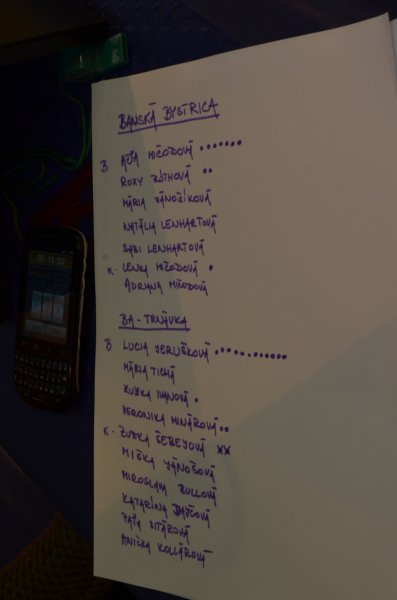 BANSKÁ BYSTRICA
B AŤJA MIČODOVÁ ••••••••
ROXY TÓTHOVÁ ••
MÁRIA JÁNOŠÍKOVÁ
NATÁLIA LENHARTOVÁ
SABI LENHARTOVÁ
K - LENKA MIČODOVÁ •
ADRIANA MIČODOVÁ
BA - TRNÁVKA
B LUCIA JERUŠKOVÁ ••••••••••••
MÁRIA TICHÁ
ZUZKA IVANOVÁ •
VERONIKA MINÁROVÁ ••
K - ZUZKA ŠEBEJOVÁ xx
MIŠKA JÁNOŠOVÁ
MIROSLAVA BULLOVÁ
KATARÍNA
BITÁROVÁ
ANIČKA KOLLÁROVÁ
00:10:00